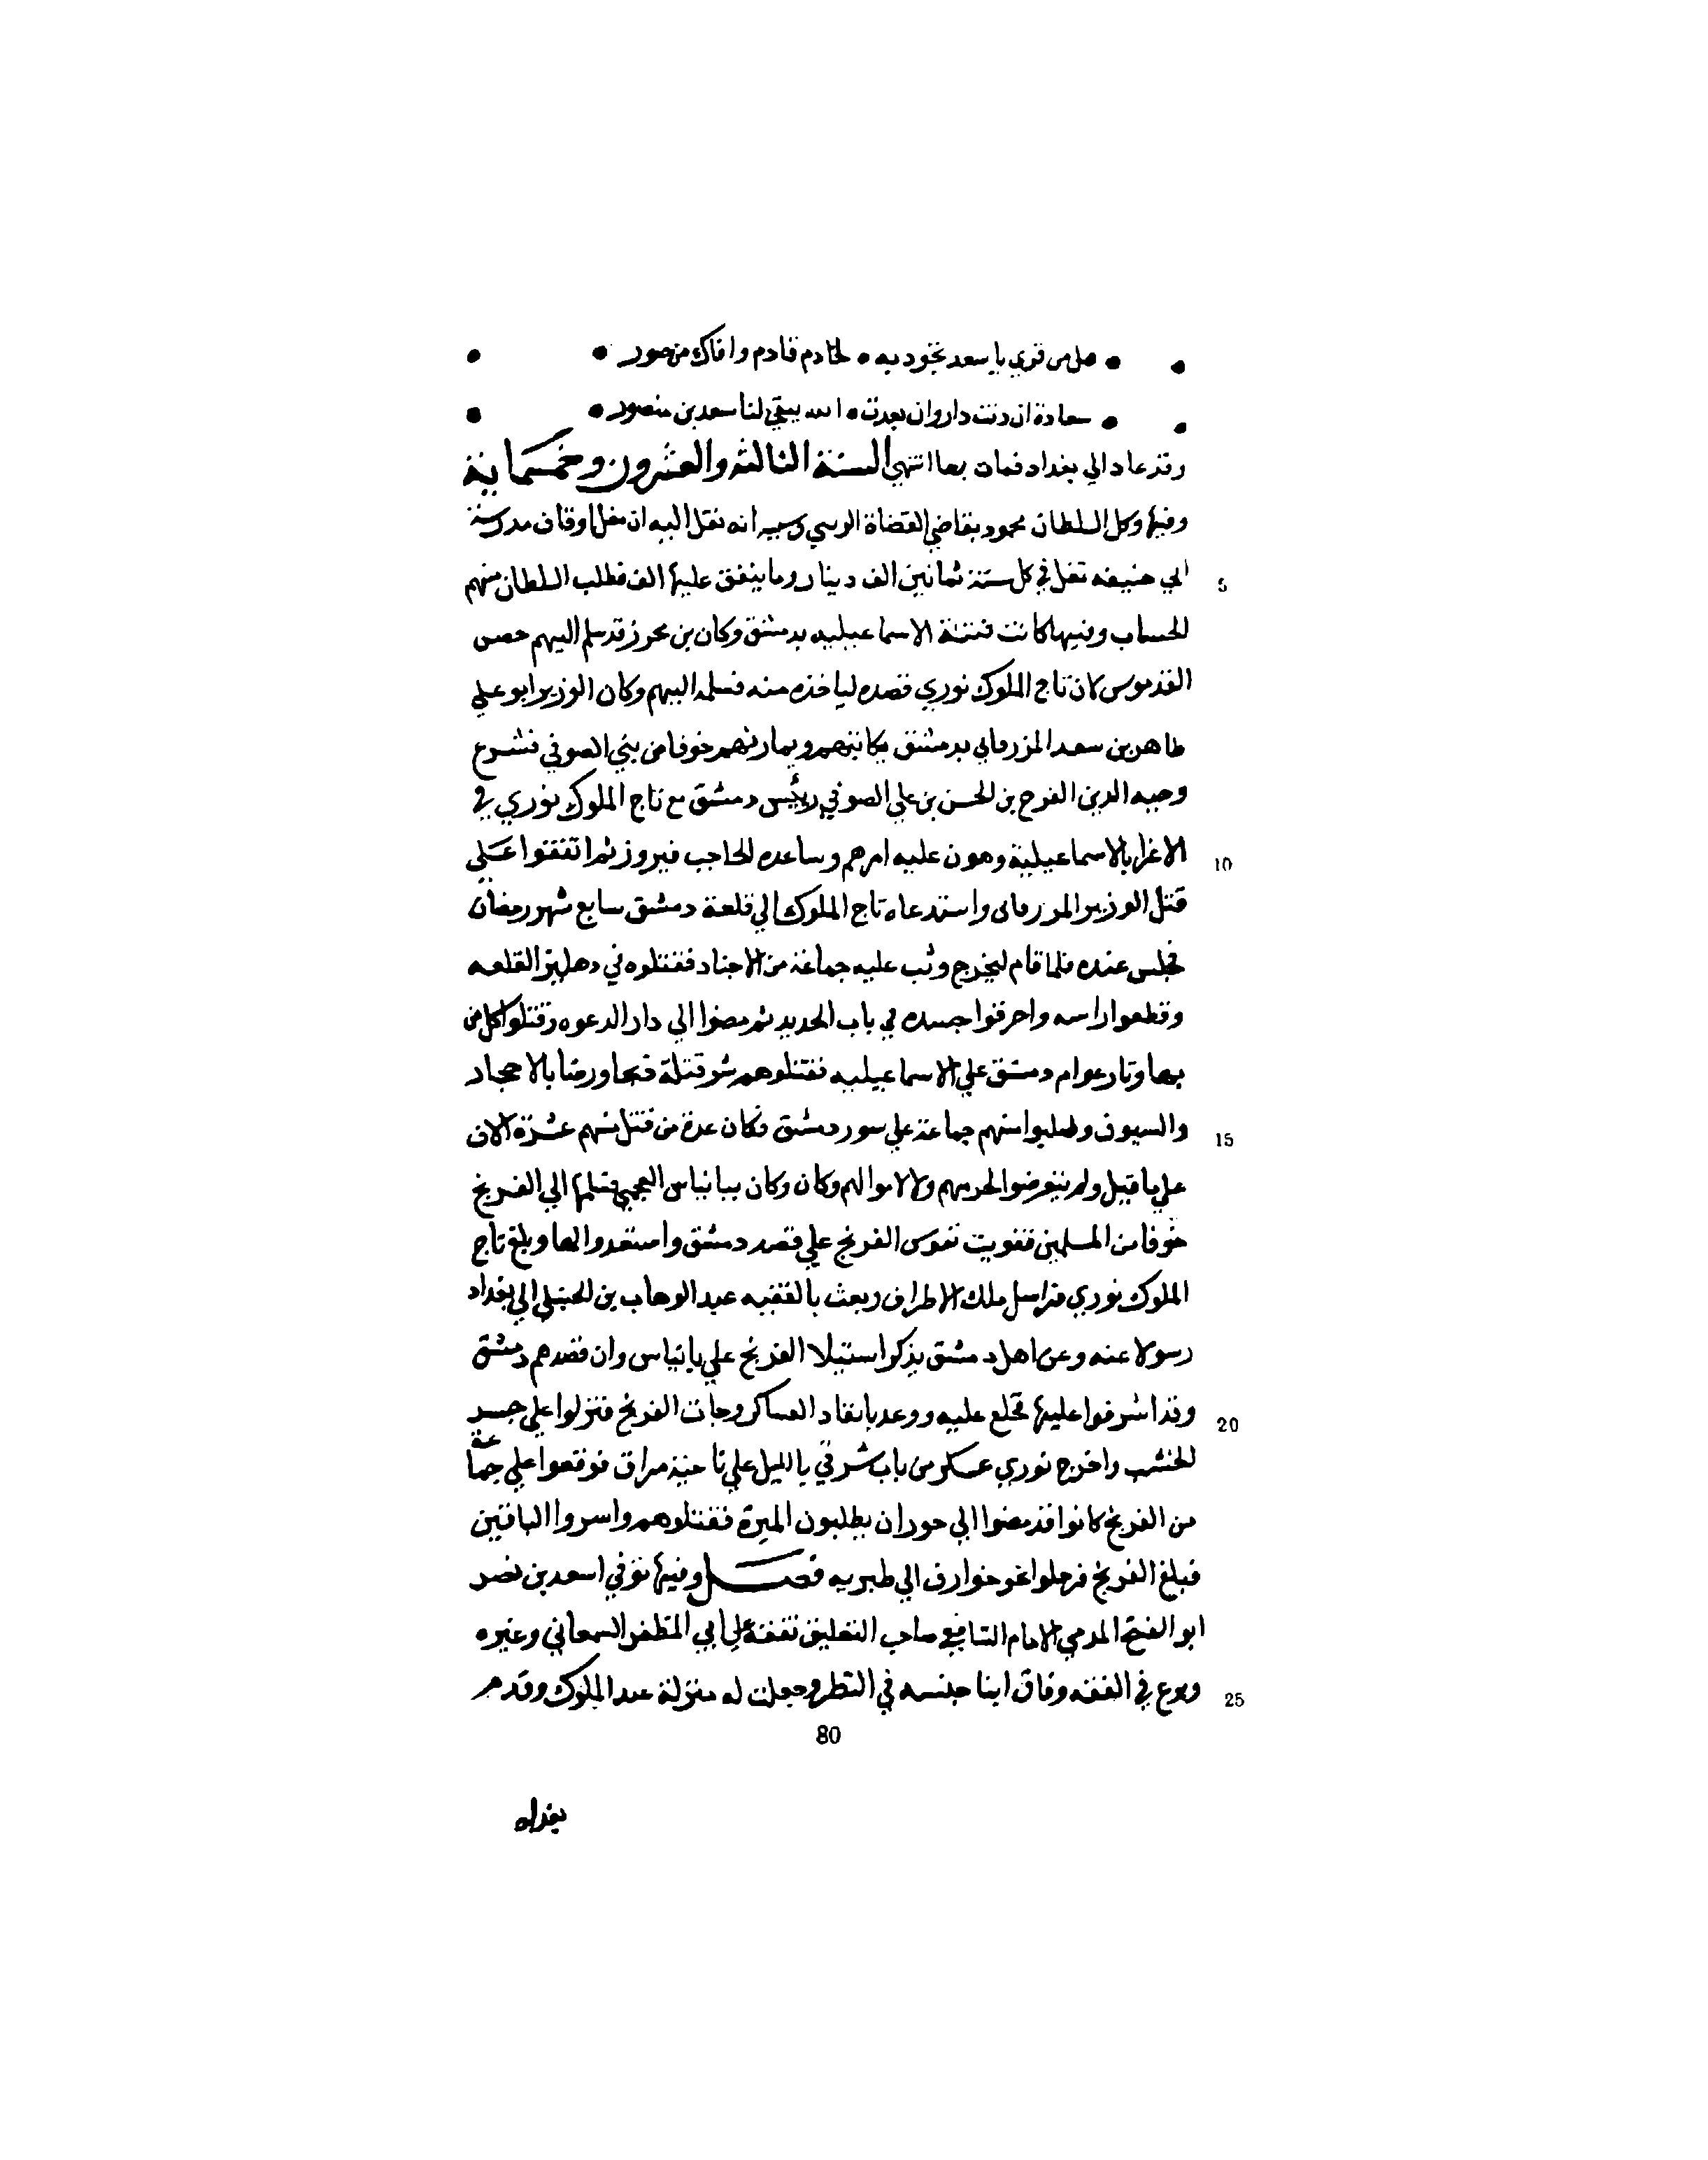 هل من قري يا سعد تجود به • لخادم قادم وافاك من صور
سعادة ان دنت دار وان بعدت • الله يبقي لنا سعد بن منصور
وقد عاد الي بغداد فمات بها انتهي السنة الثالثة والعشرون وخمسماية
وفيها وكل السلطان محمود بقاضي القضاة انه نقل اليه ان مغل اوقاف مدرسة
5 ابي حنيفه تغل في كل سنة ثمانين الف دينار وما ينفق عليها الف فطلب السلطان منهم
الحساب وفيها كانت فتنة الاسماعيليه بدمشق وكان بن محرز قد سلم اليهم حصن
القدموس كان تاج الملوك نوري قصده لياخذه منه فسلمه اليهم وكان الوزير ابو علي
طاهر بن سعد المزرقاني بدمشق يكاتبهم ويهاديهم خوفا من بني الصوفي فشرع
وجيه الدين الفرج بن الحسن بن علي الصوفي رئيس دمشق مع تاج الملوك نوري في
10 الاغرا بالاسماعيلية وهون عليه امرهم وساعده الحاجب فيروز ثم اتفقوا علي
قتل الوزير المزرقاني واستدعاه تاج الملوك الي قلعة دمشق سابع شهر رمضان
فجلس عنده فلما قام ليخرج وثب عليه جماعة من الاجناد فقتلوه في دهليز القلعه
وقطعوا راسه واحرقوا جسده في باب الحديد ثم مضوا الي دار الدعوه وقتلوا كل من
بها وثار عوام دمشق علي الاسماعيليه فقتلوهم شر قتلة بالاحجار
15 والسيوف وصلبوا منهم جماعة علي سور دمشق فكان عدة من قتل منهم عشرة الاف
علي ما قيل ولم يتعرضوا لحرمهم ولا لاموالهم وكان وكان ببانياس العجمي فسلمها الي الفرنج
خوفا من المسلمين فقويت نفوس الفرنج علي قصد دمشق واستعدوا لها وبلغ تاج
الملوك نوري فراسل ملك الاطراف وبعث بالفقيه عبد الوهاب بن الحنبلي الي بغداد
رسولا عنه وعن اهل دمشق يذكر استيلا الفرنج علي بانياس وان قصدهم دمشق
20 وقد اشرفوا عليها فخلع عليه ووعد بانفاد العساكر وجات الفرنج فنزلوا علي جسر
الخشب واخرج نوري عسكر من باب شرقي بالليل علي ناحية مراق فوقعوا علي جماعة
من الفرنج كانوا قد مضوا الي حوران يطلبون الميرة فقتلوهم واسروا الباقين
فبلغ الفرنج فرحلوا نحو الي طبريه فصل وفيها توفي اسعد بن نصر
ابو الفتح الامام الشافعي صاحب التعليق تفقه علي ابي المظفر السمعاني وغيره
25 وبرع في الفقه وفاق ابنا جنسه في النظر وجعلت له منزلة عند الملوك وقدم
80
بغداد